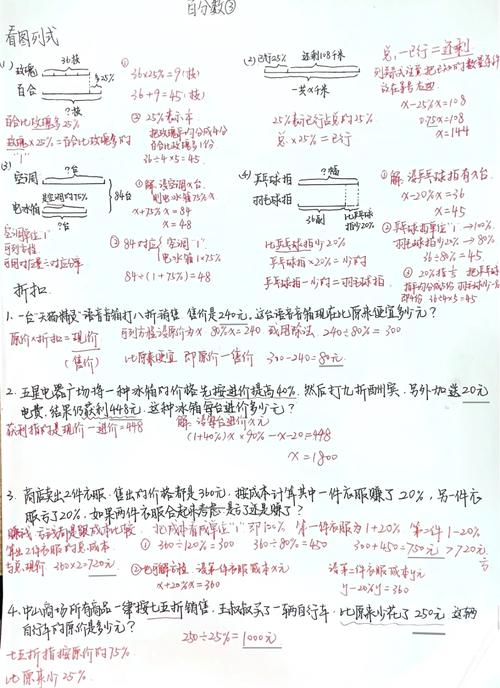 百分数③
看图列式
(1) 玫瑰 36枝
百合 多25%
?枝
百合比玫瑰多25%
玫瑰×25%=百合比玫瑰多的
"1"
① 36×25%=9(枝)
36+9=45(枝)
② 25%表示
把玫瑰平均分成4份
百合比玫瑰多1份
36÷4×5=45.
(2) 已行25% 还剩108千米
一共x千米
25%表示已行占总的25%
总×25%=已行
总-已行=还剩
x-25%x=108
0.75x=108
x=144
(3) 空调 ?台
是空调的75%
电冰箱
?台
84台
空调单位"1"
可列方程
可用对应量÷对应分率
① 解:设空调x台.
则电冰箱75%x
x+75%x=84
x=48
② 84对应 空调"1"
电冰箱1×75%
84÷(1+75%)=48
(4) 乒乓球拍 ?幅
羽毛球拍
36副 比乒乓球拍少20%
比乒乓球拍少20%
乒乓球拍×20%=少的
乒乓球拍-少的=羽毛球拍
① 解:设乒乓球拍有x台.
x-20%x=36
x=45
② 乒乓球拍单位"1"→100%.
羽毛球拍少20%→80%
36÷80%=45
③ 20%指 把乒乓球
拍平均分成5份 羽毛球少一份
即4份 36÷4×5=45
折扣.
1. 一台"天猫精灵"语音音箱打八折销售.售价是240元,这台语音音箱现在比原来便宜多少元?
原价×折扣=现价 可列方程设原价为x 80%x=240 或用除法.240÷80%=300
(售价) 比原来便宜 即原价-售价 300-240=80元.
2. 五星电器广场将一种冰箱的价格先按进价提高40%.然后打九折酬宾.另外加送20元
电费.结果仍获利448元.这种冰箱每台进价多少元?
获利指的是现价-进价=448 解:设每台进价x元
(1+40%)x×90%-x-20=448
x=1800
3. 商店卖出2件衣服.售出的价格都是360元.按成本计算其中一件衣服赚了20%,另一件衣
服亏了20%.如果两件衣服合起来考虑是亏了还是赚了?
赚钱亏钱都是跟成本比较. 把成本看成单位"1"即100%. 第一件衣服为1+20%.第二件1-20%
算出2件衣服的总成本 ① 360÷120%=300 360÷80%=450 300+450=750元>720元
与总现价 360×2=720元. ② 也可解方程 设第一件衣服成本x元 设第二件衣服成本y元 亏
x+20%x=360 y-20%y=360
4. 中山商场所有商品一律按七五折销售.王叔叔买了一辆自行车.比原来少花了250元.这辆
自行车的原价是多少元?
250÷25%=1000元
七五折指按原价的75%.
比原来少25%.